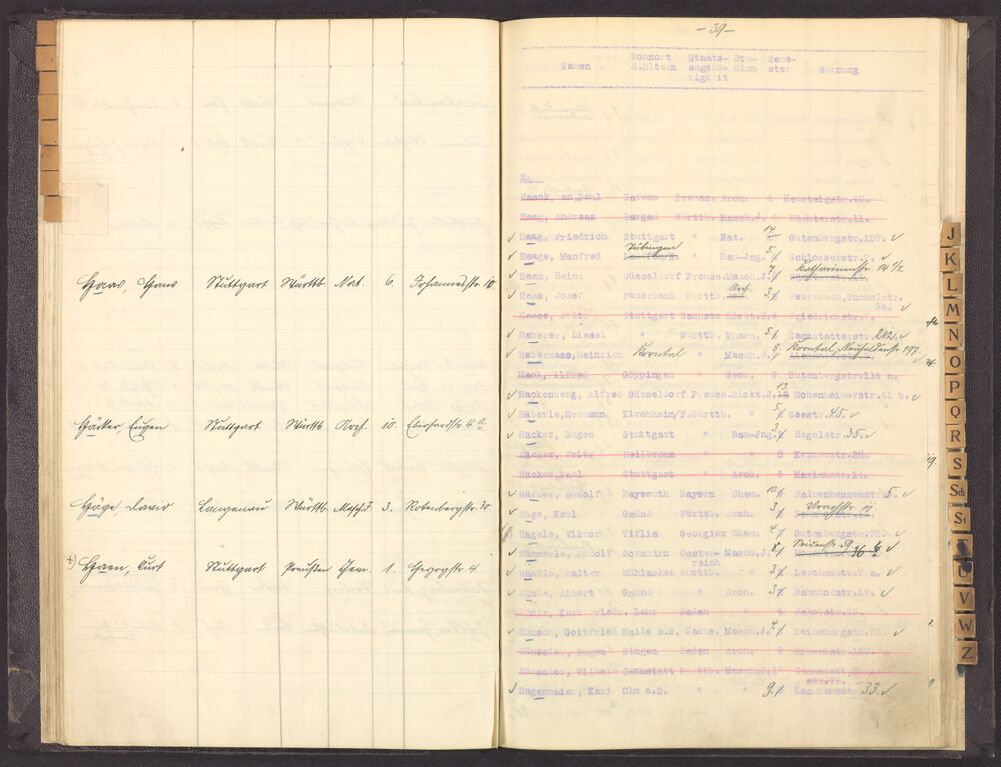 Haas, Hans Stuttgart Württb. Nat. 6. Johannesstr. 10
Häcker, Eugen Stuttgart Württb. Arch. 10. Eberhardstr. 4a
Häge, David Langenau Württb. Masch.J. 3. Rotenbergstr. 30
Haen, Curt Stuttgart Preußen Chem. 1. Georgstr. 4
-39-
Namen Wohnort d.Eltern Staats-angehörigkeit Stu-dium Seme-ster Wohnung
H.
Haack, an, Paul Barmen Preuss. Arch. 4 Neusteigstr.49.
Haag, Andreas Bargau Württb. Masch.J. 6 Wächterstr.11.
Haag, Friedrich Stuttgart " Nat. 14 Gutenbergstr.107.
Haage, Manfred Tübingen " Bau-Jng. 5 Schlosserstr.
Haan, Heinz Düsseldorf Preuss. Masch.J. 7 Katharinenstr. 14 1/2
Haas, Josef Feuerbach Württb. Arch. 3 Feuerbach, Tunnelstr.
9a.
Haase, Fritz Stuttgart Sachsen Elekt.J. 4 Friedrichstr.
Haberer, Liesel " Württb. Pharm. 5 Cannstatterstr. 212.
Habermaas, Heinrich Korntal " Masch.J. 3. Korntal, Neuhaldenstr. 197
Hack, Alfred Göppingen " Geod. 9 Gutenbergstr.
Hackenberg, Alfred Düsseldorf Preuss. Elekt.J. 13. Hohenheimerstr.41 b.
Häberle, Hermann Kirchheim/T. Württb. " 5 Seestr. 45.
Häcker, Eugen Stuttgart " Bau-Jng. 3 Hegelstr. 35.
Häcker, Fritz Heilbronn " " 8 Kernerstr.26.
Häcker, Paul Stuttgart " Arch. 6 Marienstr.
Häfner, Rudolf Bayreuth Bayern Chem. 10. Falbenhennenstr. 5.
Häge, Karl Gmünd Württb. Arch. 3 Urachstr. 11
Hägele, Viktor Tiflis Georgien Chem. 4 Gutenbergstr.
Hämmerle, Rudolf Dornbirn Oester-reich Masch.J. 8 Seidenstr. 36
Händle, Walter Mühlacker Württb. " " 3 Lerchenstr.7 a.
Hänle, Albert Gmünd " Arch. 3 Bahnhofstr.
Hänle, Karl Friedr. Lahr Baden " 4 Jakobstr.
Hänsch, Gottfried Halle a.S. Sachs. Masch.J. 4. Reinsburgstr.
Hänssler, Eugen Singen Baden Arch. 9
Hänssler, Wilhelm Cannstatt Württb. Masch.J. Cannstatt,
Hagenmaier, Karl Ulm a.D. " " 9. Landhausstr. 33.
J
K
L
M
N
O
P
Q
R
S
Sch
St
T
U
V
W
Z